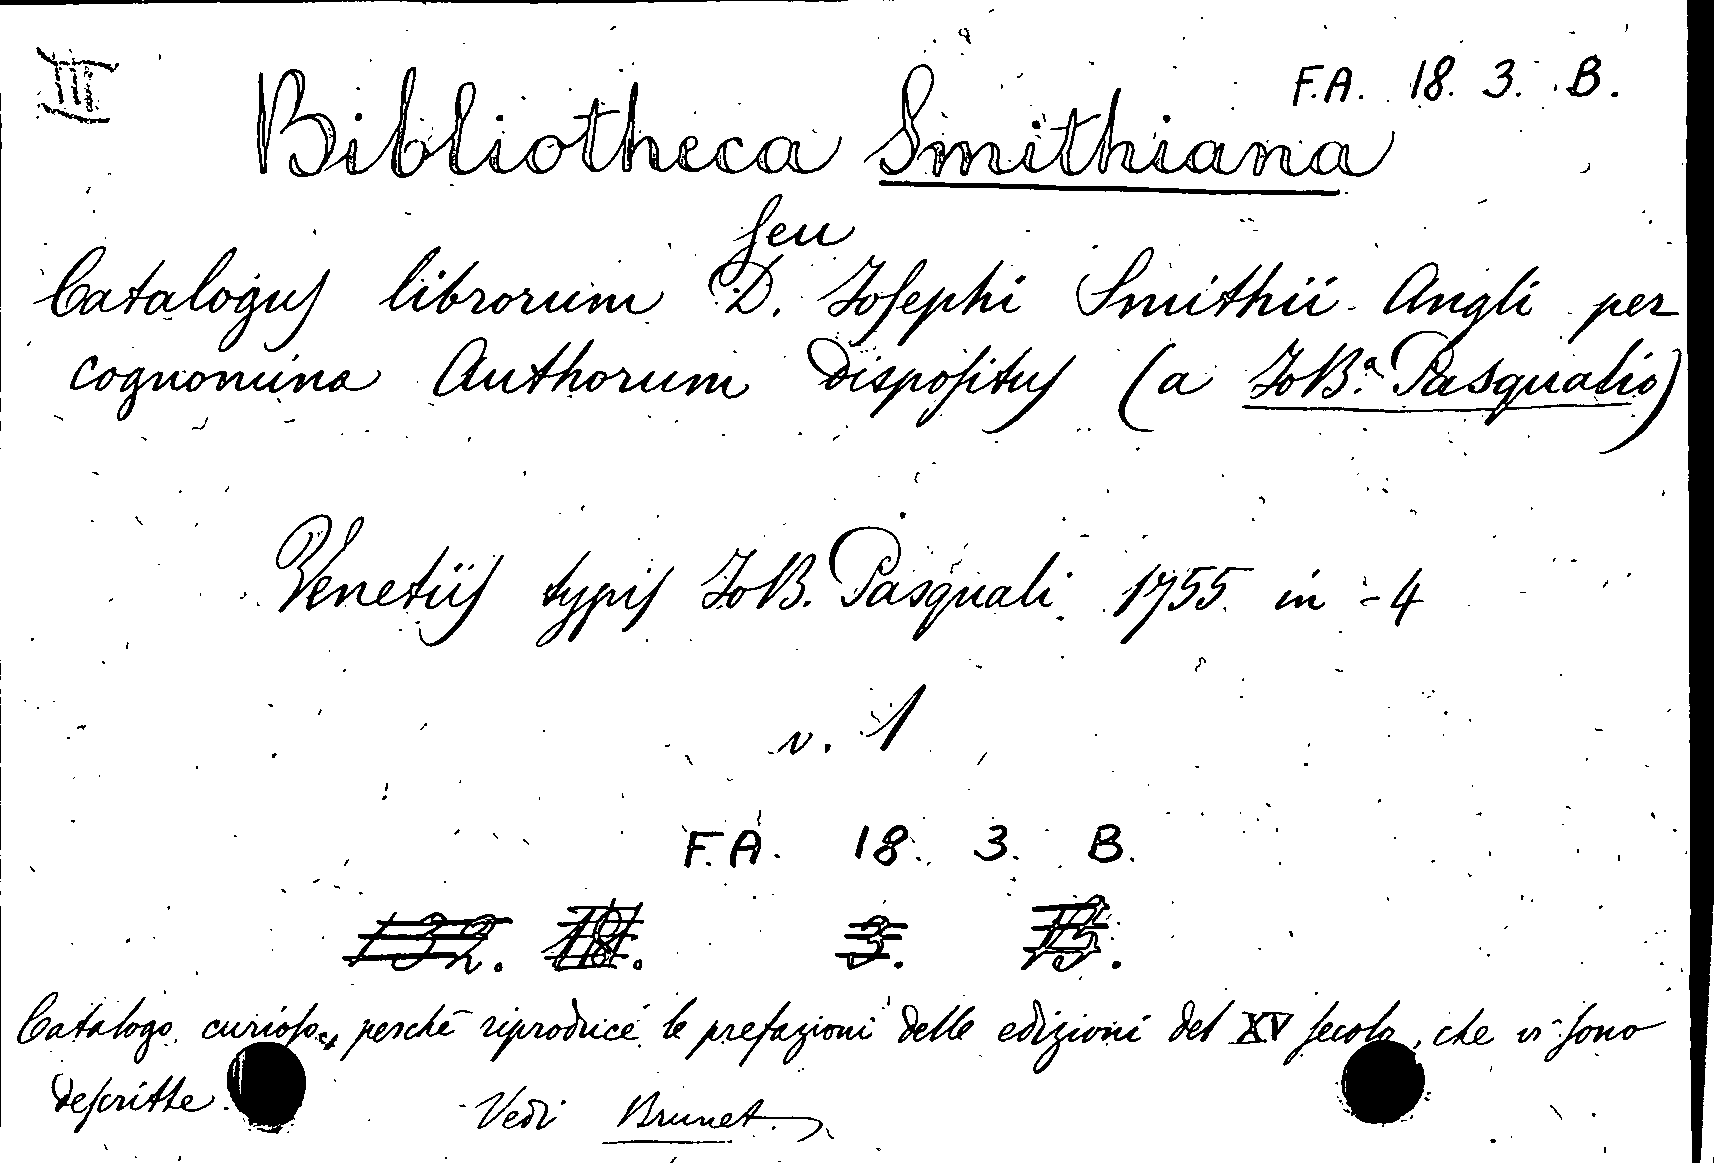 III
F.A. 18. 3. B.
Bibliotheca Smithiana
seu
Catalogus librorum D. Josephi Smithii Angli per
cognomina Authorum dispositus (a JoB.a Pasqualio)
Venetiis typis JoB. Pasquali 1755 in-4
v. 1
F.A. 18. 3. B.
132. 18. 3. B.
Catalogo curioso, perchè riproduce le prefazioni delle edizioni del XV secolo, che vi sono
descritte. Vedi Brunet.